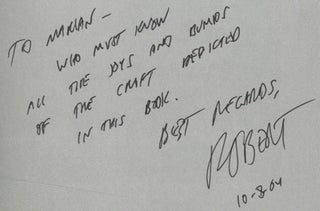 TO MARIAN -
WHO MUST KNOW
ALL THE JOYS AND BUMPS
OF THE CRAFT DEPICTED
IN THIS BOOK.
BEST REGARDS,
ROBERT
10-8-04